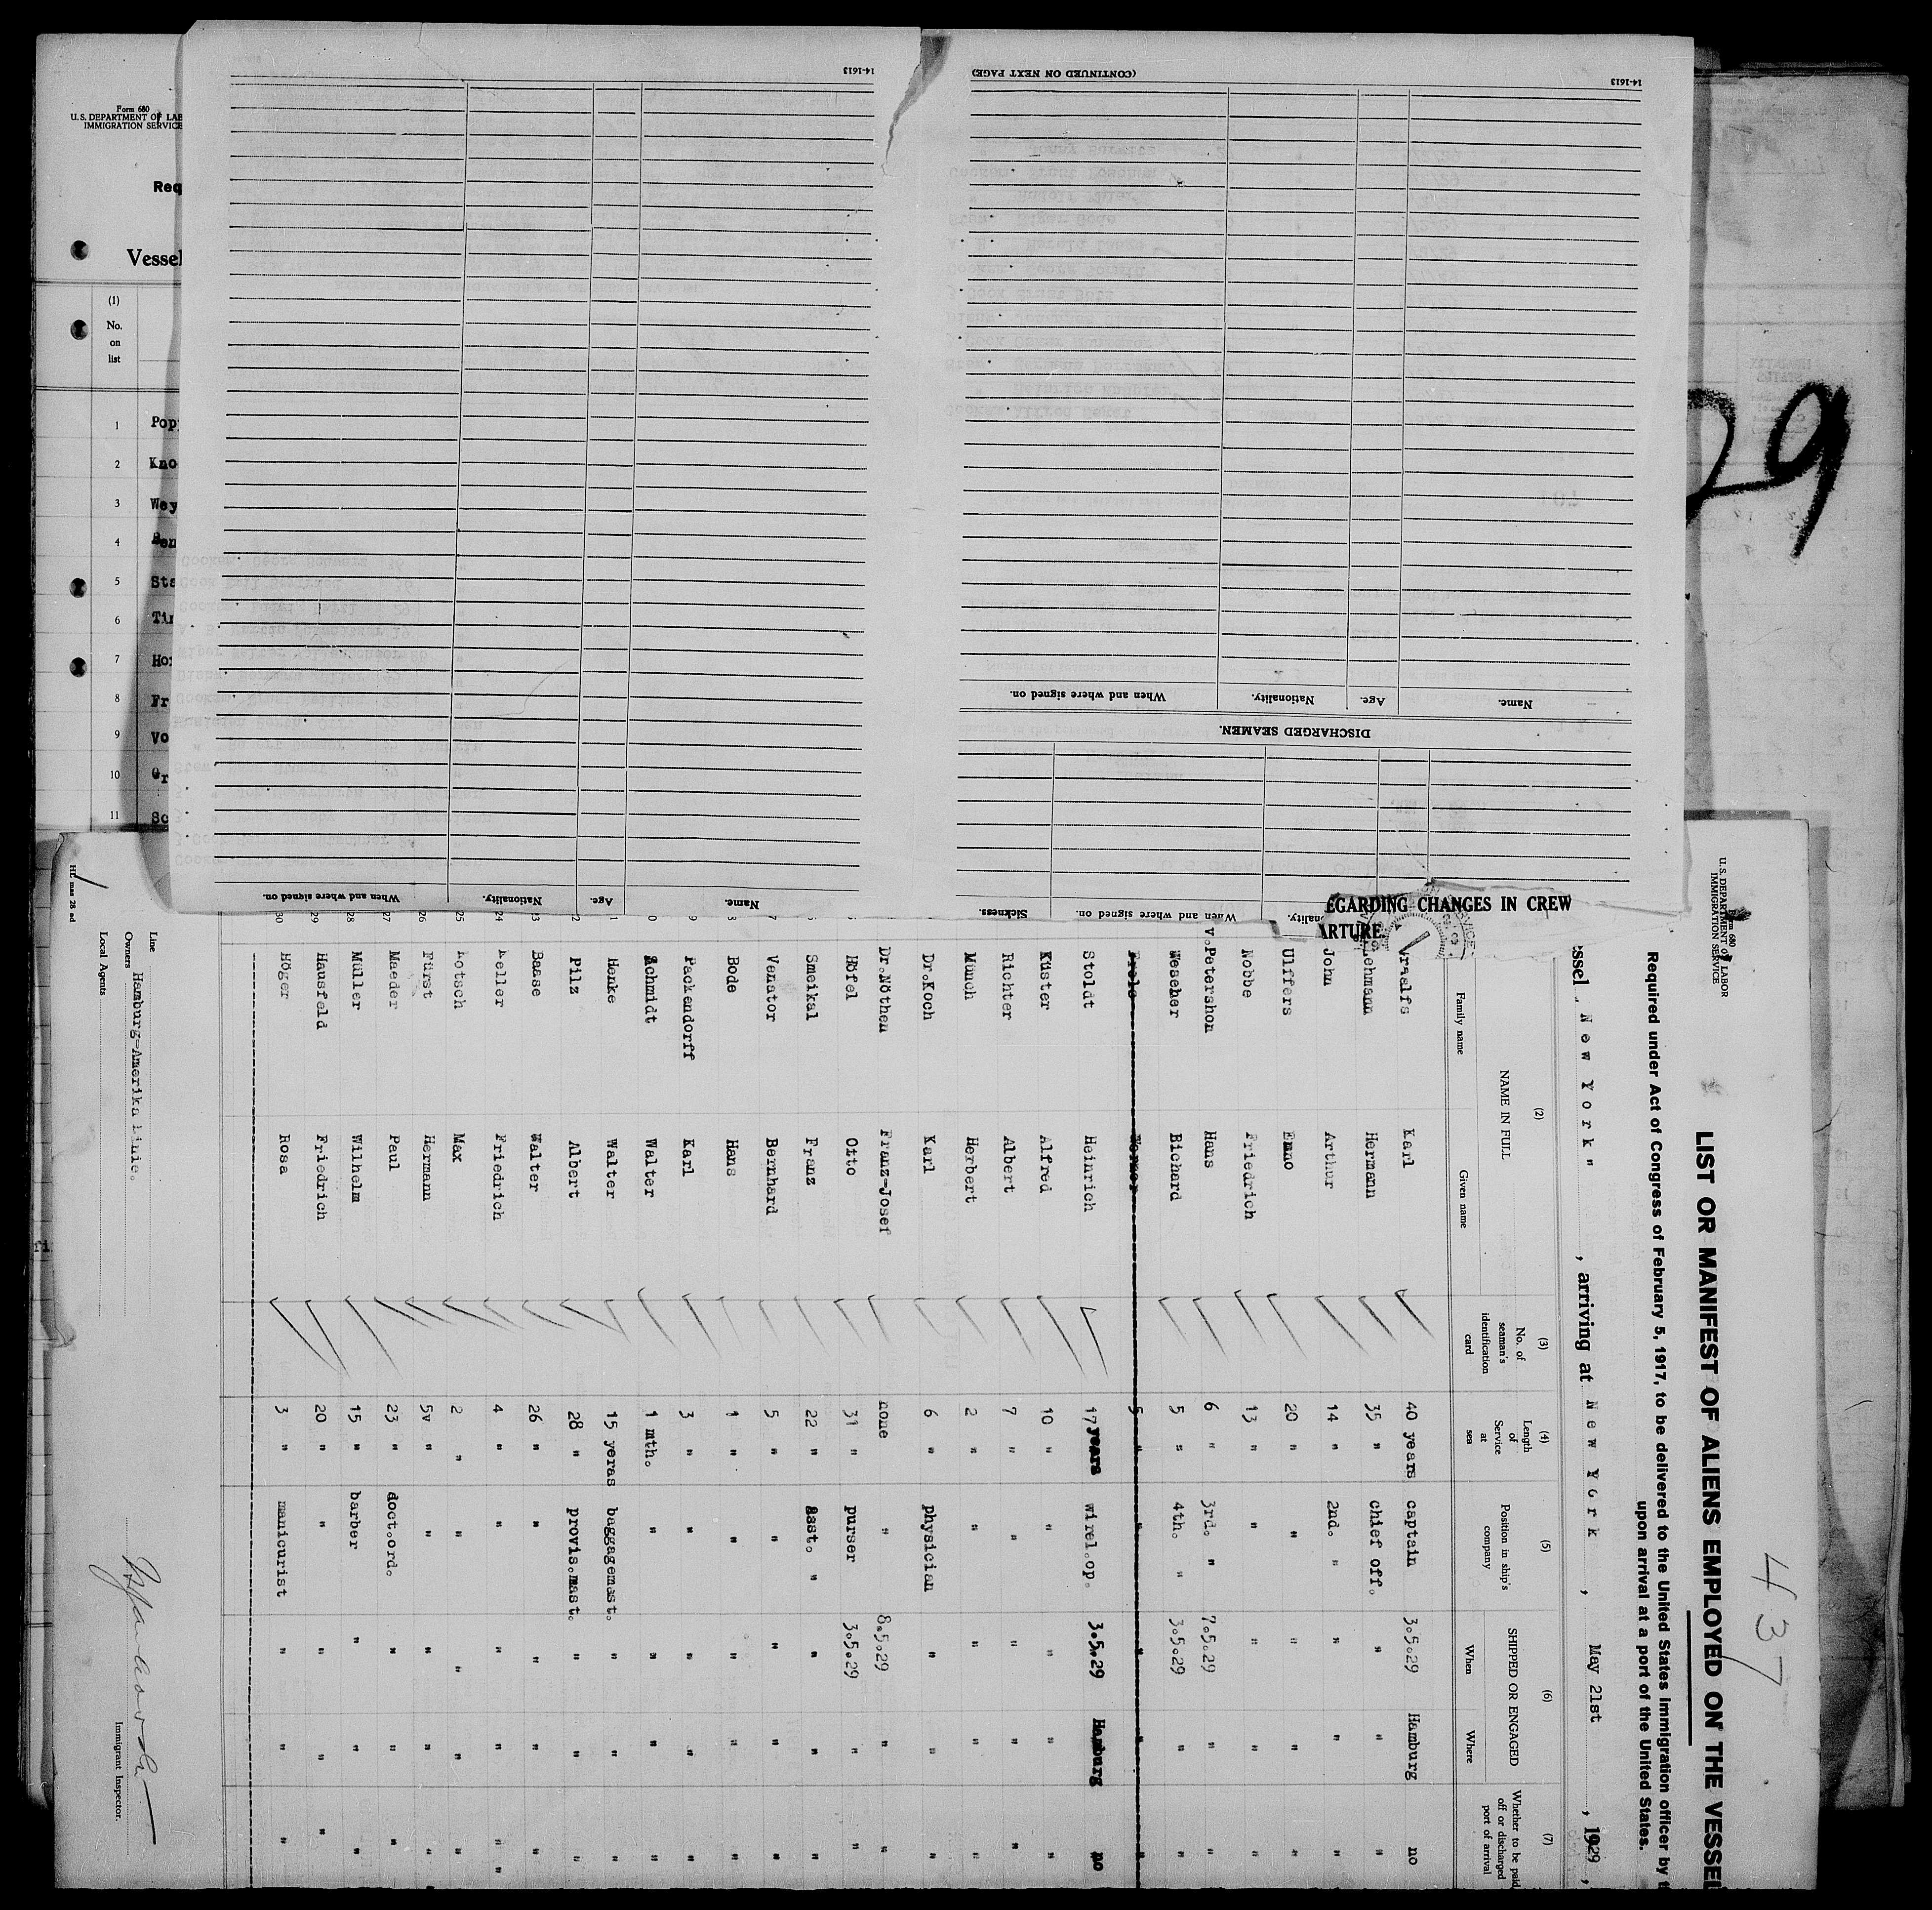 Form 680
U.S. DEPARTMENT OF LAB
IMMIGRATION SERVICE
Req
Vessel
(1)
No.
on
list
1 Pop
2 Kno
3 Wey
4 Ben
5 Sta
6 Tin
7 Hor
8 Fr
9 Vo
10 Gr
11 Sc
14-1613
Name. Age. Nationality. When and where signed on.
14-1613
(CONTINUED ON NEXT PAGE)
Name. Age. Nationality. When and where signed on.
DISCHARGED SEAMEN.
nality. When and where signed on. Sickness.
EGARDING CHANGES IN CREW
ARTURE.
29
437
Form 680
U.S. DEPARTMENT OF LABOR
IMMIGRATION SERVICE
LIST OR MANIFEST OF ALIENS EMPLOYED ON THE VESSEL
Required under Act of Congress of February 5, 1917, to be delivered to the United States immigration officer by t
upon arrival at a port of the United States.
ssel "New York", arriving at New York, May 21st, 1929,
(2) (3) (4) (5) (6) (7)
NAME IN FULL
Family name Given name
No. of seaman's identification card
Length of Service at sea
Position in ship's company
SHIPPED OR ENGAGED
When Where
Whether to be paid off or discharged port of arrival
Graalfs Karl 40 years captain 3.5.29 Hamburg no
Lehmann Hermann 35 " chief off. " " "
John Arthur 14 " 2nd. " " " "
Ulffers Enno 20 " " " " "
Nobbe Friedrich 13 " " " " "
v.Petershon Hans 6 " 3rd. " 7.5.29 " "
Weseher Richard 5 " 4th. " 3.5.29 " "
Stoldt Heinrich 17 years wirel.op. 3.5.29 Hamburg no
Küster Alfred 10 " " " " "
Richter Albert 7 " " " " "
Münch Herbert 2 " " " " "
Dr.Koch Karl 6 " physician " " "
Dr.Nöthen Franz-Josef none " 8.5.29 " "
Höfel Otto 31 " purser 3.5.29 " "
Smeikal Franz 22 " asst. " " " "
7 Venator Bernhard 5 " " " " "
8 Bode Hans 1 " " " " "
9 Packendorff Karl 3 " " " " "
0 Schmidt Walter 1 mth. " " " "
1 Henke Walter 15 yeras baggagemast. " " "
2 Pilz Albert 28 " provis.mast. " " "
3 Baase Walter 26 " " " " "
24 Keller Friedrich 4 " " " " "
25 Lotsch Max 2 " " " " "
26 Fürst Hermann 5v " " " " "
27 Maeder Paul 23 " doct.ord. " " "
28 Müller Wilhelm 15 " barber " " "
29 Hausfeld Friedrich 20 " " " " "
30 Höger Rosa 3 " manicurist " " "
Line
Owners Hamburg-Amerika Linie.
Local Agents
Immigrant Inspector.